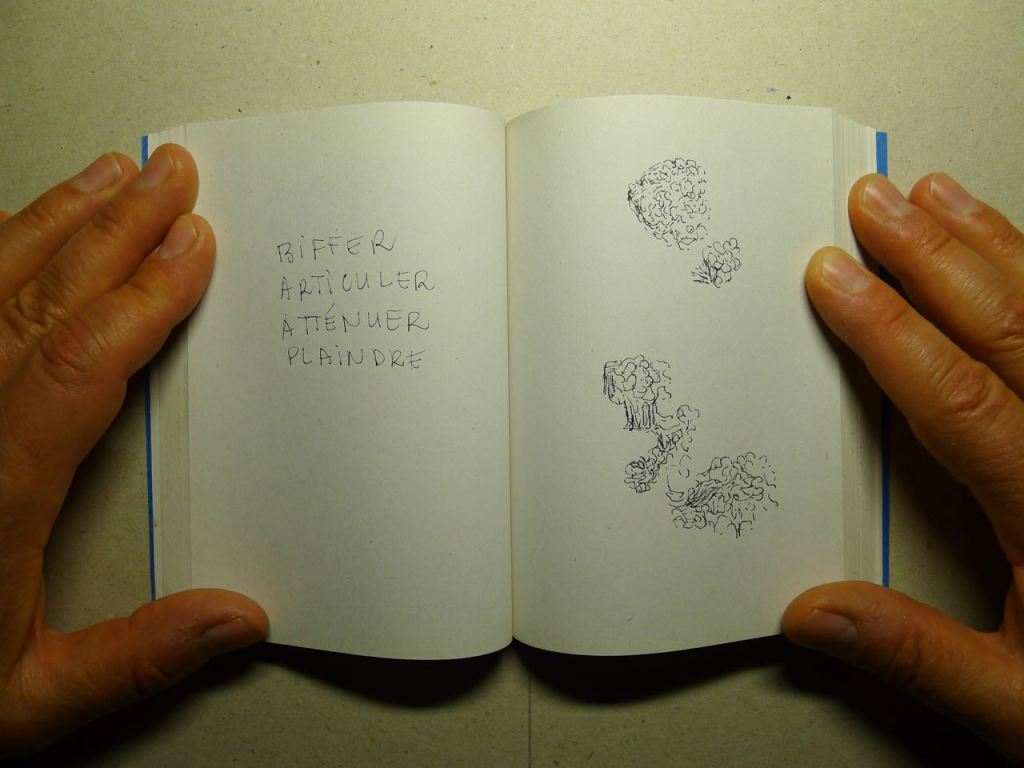 BIFFER
ARTICULER
ATTÉNUER
PLAINDRE